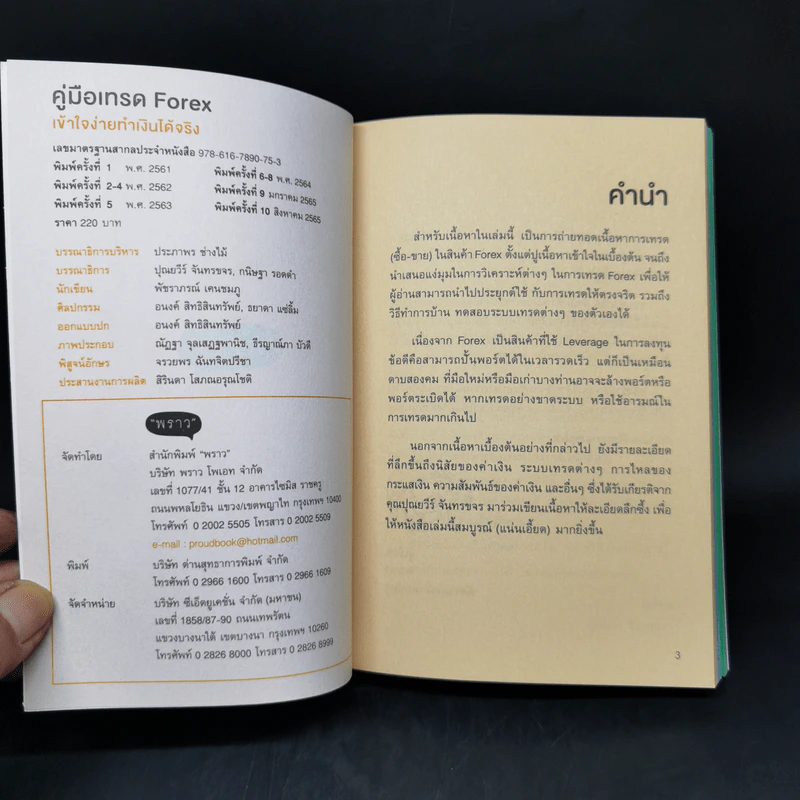 คู่มือเทรด Forex
เข้าใจง่ายทำเงินได้จริง
เลขมาตรฐานสากลประจำหนังสือ 978-616-7890-75-3
พิมพ์ครั้งที่ 1 พ.ศ. 2561 พิมพ์ครั้งที่ 6-8 พ.ศ. 2564
พิมพ์ครั้งที่ 2-4 พ.ศ. 2562 พิมพ์ครั้งที่ 9 มกราคม 2565
พิมพ์ครั้งที่ 5 พ.ศ. 2563 พิมพ์ครั้งที่ 10 สิงหาคม 2565
ราคา 220 บาท
บรรณาธิการบริหาร ประภาพร ช่างไม้
บรรณาธิการ ปุณยวีร์ จันทรขจร, กนิษฐา รอดดำ
นักเขียน พัชราภรณ์ เคนชมภู
ศิลปกรรม อนงค์ สิทธิสินทรัพย์, ธยาดา แซ่ลิ้ม
ออกแบบปก อนงค์ สิทธิสินทรัพย์
ภาพประกอบ ณัฏฐา จุลเสฏฐพานิช, ธีรญาณ์ภา บัวดี
พิสูจน์อักษร จรวยพร ฉันทจิตปรีชา
ประสานงานการผลิต สิรินดา โสภณอรุณโชติ
"พราว"
จัดทำโดย สำนักพิมพ์ "พราว"
บริษัท พราว โพเอท จำกัด
เลขที่ 1077/41 ชั้น 12 อาคารไซมิส ราชครู
ถนนพหลโยธิน แขวง/เขตพญาไท กรุงเทพฯ 10400
โทรศัพท์ 0 2002 5505 โทรสาร 0 2002 5509
e-mail : proudbook@hotmail.com
พิมพ์ บริษัท ด่านสุทธาการพิมพ์ จำกัด
โทรศัพท์ 0 2966 1600 โทรสาร 0 2966 1609
จัดจำหน่าย บริษัท ซีเอ็ดยูเคชั่น จำกัด (มหาชน)
เลขที่ 1858/87-90 ถนนเทพรัตน
แขวงบางนาใต้ เขตบางนา กรุงเทพฯ 10260
โทรศัพท์ 0 2826 8000 โทรสาร 0 2826 8999
คำนำ
สำหรับเนื้อหาในเล่มนี้ เป็นการถ่ายทอดเนื้อหาการเทรด
(ซื้อ-ขาย) ในสินค้า Forex ตั้งแต่ปูเนื้อหาเข้าใจในเบื้องต้น จนถึง
นำเสนอแง่มุมในการวิเคราะห์ต่างๆ ในการเทรด Forex เพื่อให้
ผู้อ่านสามารถนำไปประยุกต์ใช้ กับการเทรดให้ตรงจริต รวมถึง
วิธีทำการบ้าน ทดสอบระบบเทรดต่างๆ ของตัวเองได้
เนื่องจาก Forex เป็นสินค้าที่ใช้ Leverage ในการลงทุน
ข้อดีคือสามารถปั้นพอร์ตได้ในเวลารวดเร็ว แต่ก็เป็นเหมือน
ดาบสองคม ที่มือใหม่หรือมือเก่าบางท่านอาจจะล้างพอร์ตหรือ
พอร์ตระเบิดได้ หากเทรดอย่างขาดระบบ หรือใช้อารมณ์ใน
การเทรดมากเกินไป
นอกจากเนื้อหาเบื้องต้นอย่างที่กล่าวไป ยังมีรายละเอียด
ที่ลึกขึ้นถึงนิสัยของค่าเงิน ระบบเทรดต่างๆ การไหลของ
กระแสเงิน ความสัมพันธ์ของค่าเงิน และอื่นๆ ซึ่งได้รับเกียรติจาก
คุณปุณยวีร์ จันทรขจร มาร่วมเขียนเนื้อหาให้ละเอียดลึกซึ้ง เพื่อ
ให้หนังสือเล่มนี้สมบูรณ์ (แน่นเอี้ยด) มากยิ่งขึ้น
3